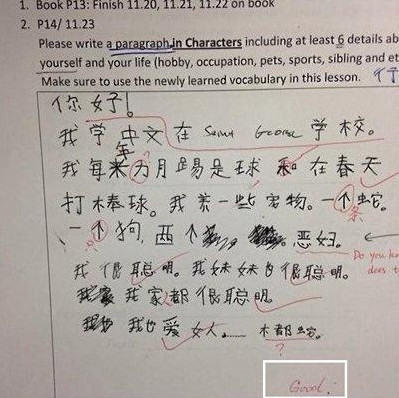 1. Book P13: Finish 11.20, 11.21, 11.22 on book
2. P14/ 11.23
Please write a paragraph in Characters including at least 6 details ab
yourself and your life (hobby, occupation, pets, sports, sibling and et
Make sure to use the newly learned vocabulary in this lesson.
你好!
我学中文在 Saint George 学校。
我每 月踢是球 和 在春天
打棒球。我养一些宠物。一个蛇。
条
一个狗,两个 。恶妇。
Do you k
does t
我很聪明。我妹妹也很聪明。
我家都很聪明。
我也爱女人。 都蛇。
?
Good!